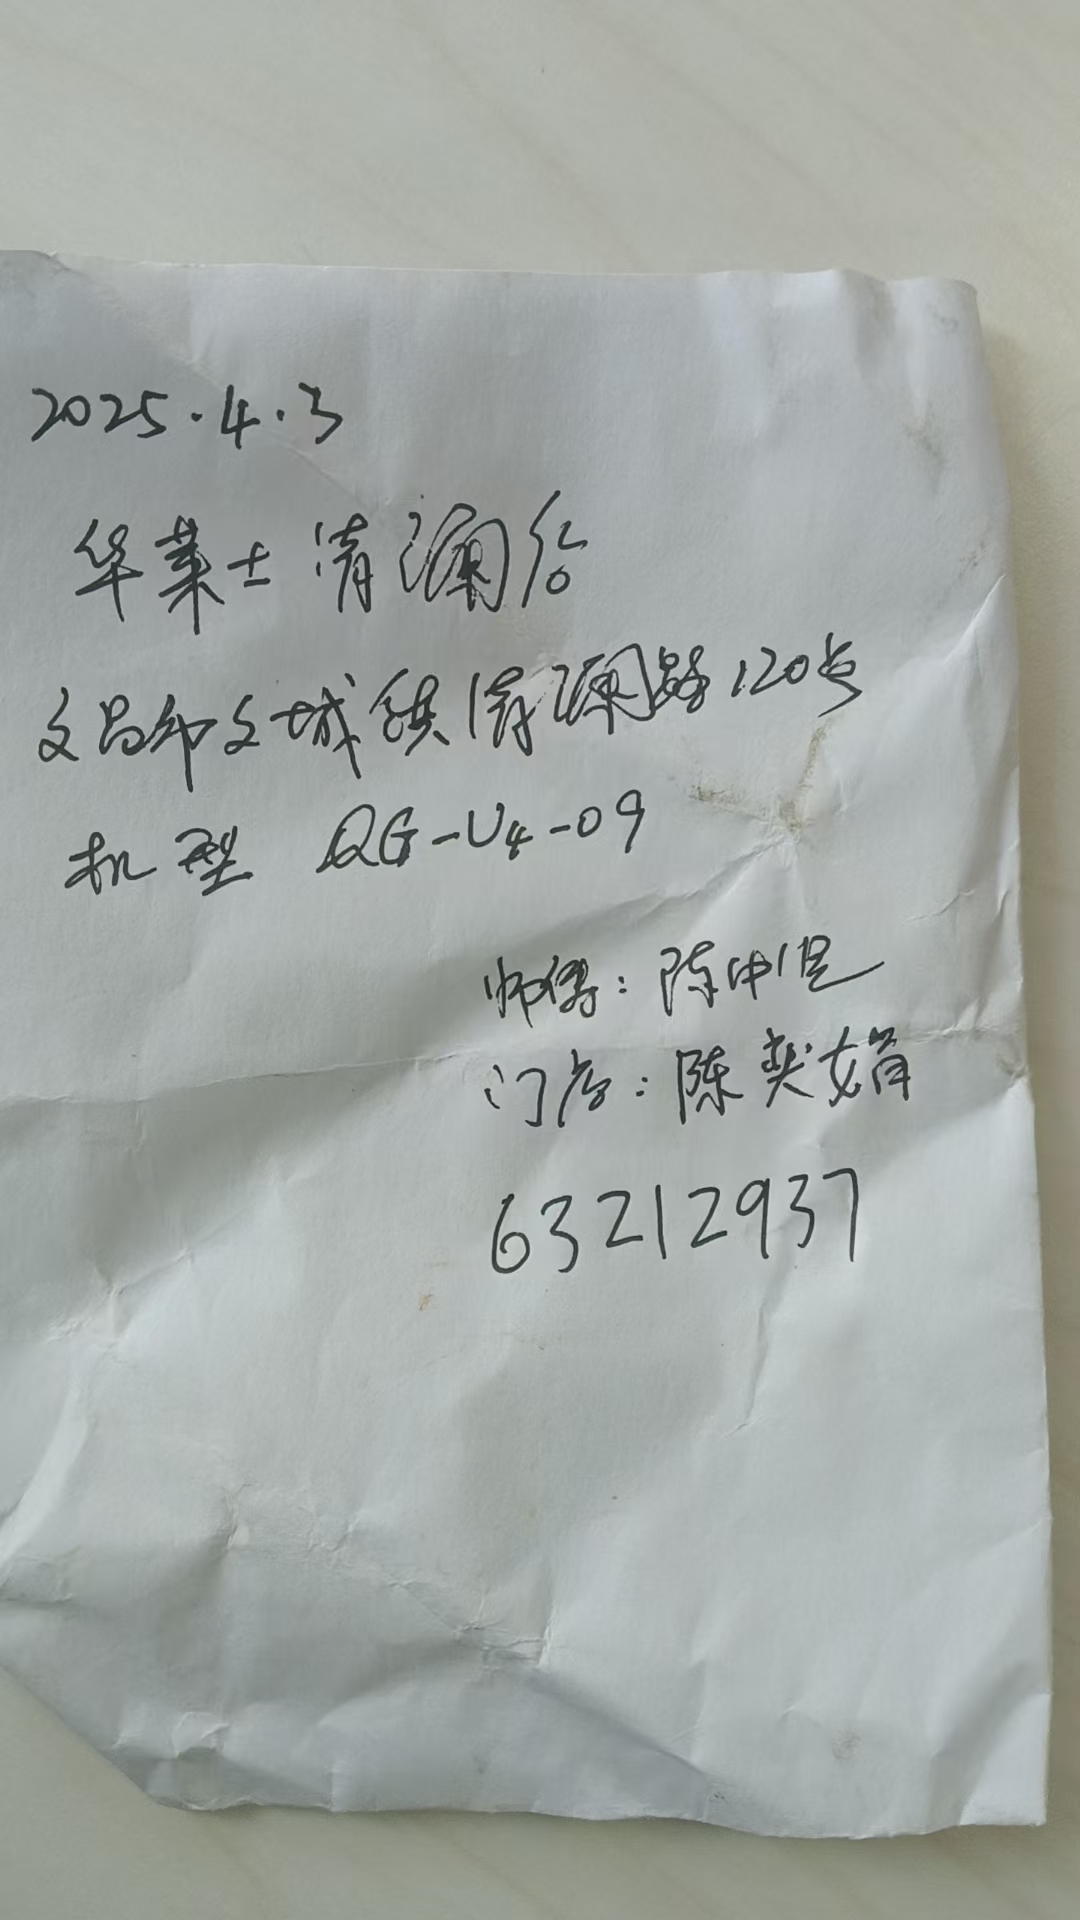 2025.4.3
华莱士清澜店
文昌市文城镇清澜路120号
机型 QG-U4-09
师傅：陈中
门店：陈奕娟
63212937